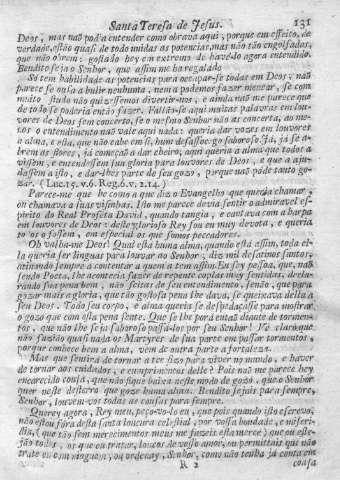 Santa Teresa de Jesus. 131
Deos, mas naõ poda entender como obrava aqui; porque em effeito, de
verdade, estaõ quasi de todo unidas as potencias, mas naõ taõ engolfadas,
que naõ obrem: gostado hey en extremo de havelo agora entendido.
Bendito seja o Senhor, que assim me ha regalado.
Só tem habilidade as potencias para occupar-se todas em Deos; naõ
parece se ousa a bulir nenhuma, nem a podemos fazer menear, se com
muito studo naõ quizessemos divertir-nos, e ainda naõ me parece que
de todo se poderia entaõ fazer. Fallaõ-se aqui muitas palavras em lou-
vores de Deos sem concerto, se o mesmo Senhor naõ as concerta, ao me-
nos o entendimento naõ vale aqui nada: queria dar vozes em louvores
a alma, e está, que naõ cabe em si, hum desassocego saboroso. Já, já se a-
brem as flores, já começaõ a dar cheiro, aqui queria a alma que todos a
vissem, e entendessem sua gloria para louvores de Deos, e que a aju-
dassem a isto, e dar-lhes parte de seu gozo, porque naõ póde tanto go-
zar. (Luc.15. v.6. Reg.6. v.14.)
Parece-me que he como a que diz o Evangelho que queria chamar,
ou chamava a suas visinhas. Isto me parece devia sentir o admiravel es-
pirito do Real Profeta David, quando tangia, e cantava com a harpa
em louvores de Deos: deste glorioso Rey sou eu muy devota, e queria
todos o fossem, em especial os que somos peccadores.
Oh valha-me Deos! Qual está huma alma, quando está assim, toda el-
la queria ser linguas para louvar ao Senhor; diz mil desatinos santos,
atinando sempre a contentar a quem a tem assim. Eu sey pessoa, que, naõ
sendo Poeta, lhe acontecia fazer de repente coplas muy sentidas, decla-
rando sua pena bem, naõ feitas de seu entendimento, senaõ, que para
gozar mais a gloria, que taõ gostosa pena lhe dava, se queixava della a
seu Deos. Todo seu corpo, e alma queria se despedaçasse para mostrar
o gozo que com esta pena sente. Que se lhe porá entaõ diante de tormen-
tos, que naõ lhe seja saboroso passá-los por seu Senhor! Vè claro que
naõ faziaõ quasi nada os Martyres de sua parte em passar tormentos,
porque conhece bem a alma, vem de outra parte a fortaleza.
Mas que sentirá de tornar a ter sizo para viver no mundo, e haver
de tornar aos cuidados, e cumprimentos delle? Pois naõ me parece hey
encarecido cousa, que naõ fique baixa neste modo de gozo, que o Senhor
quer neste desterro que goze huma alma. Bendito sejais para sempre,
Senhor, louvem-vos todas as cousas para sempre.
Querey agora, Rey meu, peço-vo-lo eu, que pois quando isto escrevo,
naõ estou fóra desta santa loucura celestial, por vossa bondade, e miseri-
dia, (que taõ sem merecimentos meus me fazeis esta mercè) que ou este-
jaõ todos, os que eu tratar, loucos de vosso amor, ou permittais que naõ
trate eu com ninguem, ou ordenay, Senhor, como naõ tenha já conta em
R 2 cousa